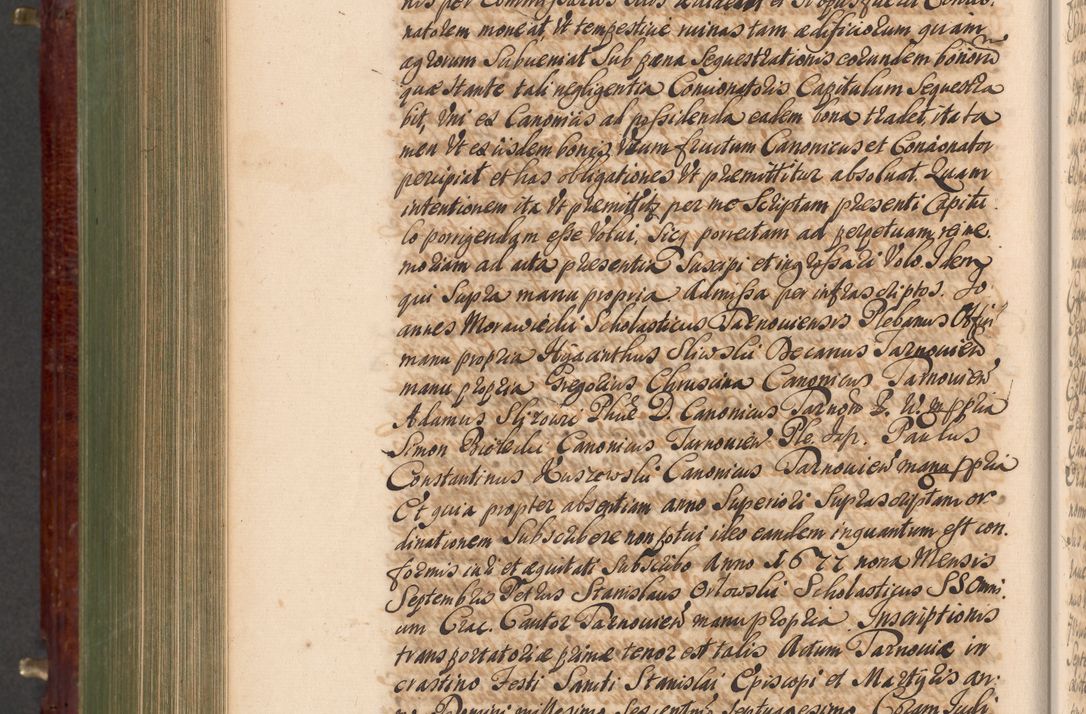 natorem moneat, ut tempestive ruinas tam ædificiorum quam
agrorum Subveniat Sub pæna Sequestrationis eorundem bonorū
quæ Stante tali negligentia Concionatoris Capitulum Sequestra
bit, Uni ex Canonicis ad possidenda eadem bona tradet, ita ta
men Ut ex iisdem bonis Usum fructum Canonicus et Concionator
percipiat et has obligationes Ut præmittitur absolvat. Quam
intentionem ita Ut præmittitur per me Scriptam præsenti Capitu
lo porrigendam esse Volui, Sicq porrectam ad perpetuam rei me
moriam ad acta præsentia Suscipi et ingrossari Volo. Idem
qui Supra manu propria Admissa per infrascriptos. Jo
annes Morawiecki Scholasticus Tarnoviensis Plebanus
manu propria Hyacinthus Sliwski Decanus Tarnovien
manu propria Gregorius Chruscina Canonicus Tarnovien
Adamus Phiæ D. Canonicus Tarnov mppria
Simon Canonicus Tarnovien Paulus
Constantinus Kuszewski Canonicus Tarnovien manu ppria
Et quia propter absentiam anno Superiori Suprascriptam or
dinationem Subscribere non potui ideo eandem inquantum est con
formis iuri et æquitati Subscribo Anno 1677 nona Mensis
Septembris Petrus Stanislaus Orłowski Scholasticus SS Omni
um Crac. Cantor Tarnovien manu propria Inscriptionis
transportatoriæ primæ tenor est talis Actum Tarnoviæ in
crastino Festi Sancti Stanislai Episcopi et Martyris an
no Domini millesimo Sexcentmo Septuagesimo Coram Judi